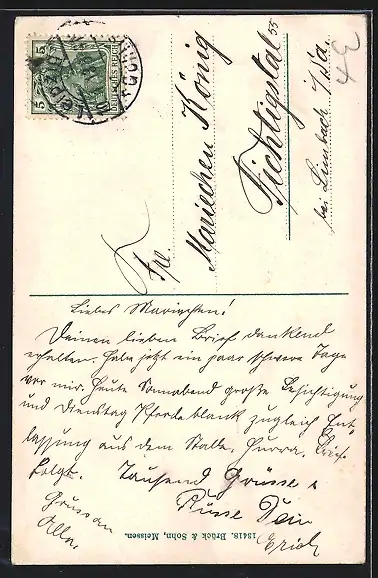 4E
5 DEUTSCHES REICH 5
Frl.
Mariechen König
Fichtigstal 55
bei Limbach i/Sa.
Liebes Mariechen!
Deinen lieben Brief dankend
erhalten. Habe jetzt ein paar schwere Tage
vor mir. Heute Sonnabend große Besichtigung
und Dienstag Pferde blank zugleich Ent-
lassung aus dem Stalle. Hurra. Brief
folgt. Tausend Grüsse &
Küsse Dein
Erich
Gruss an
Alle.
13418. Brück & Sohn, Meissen.